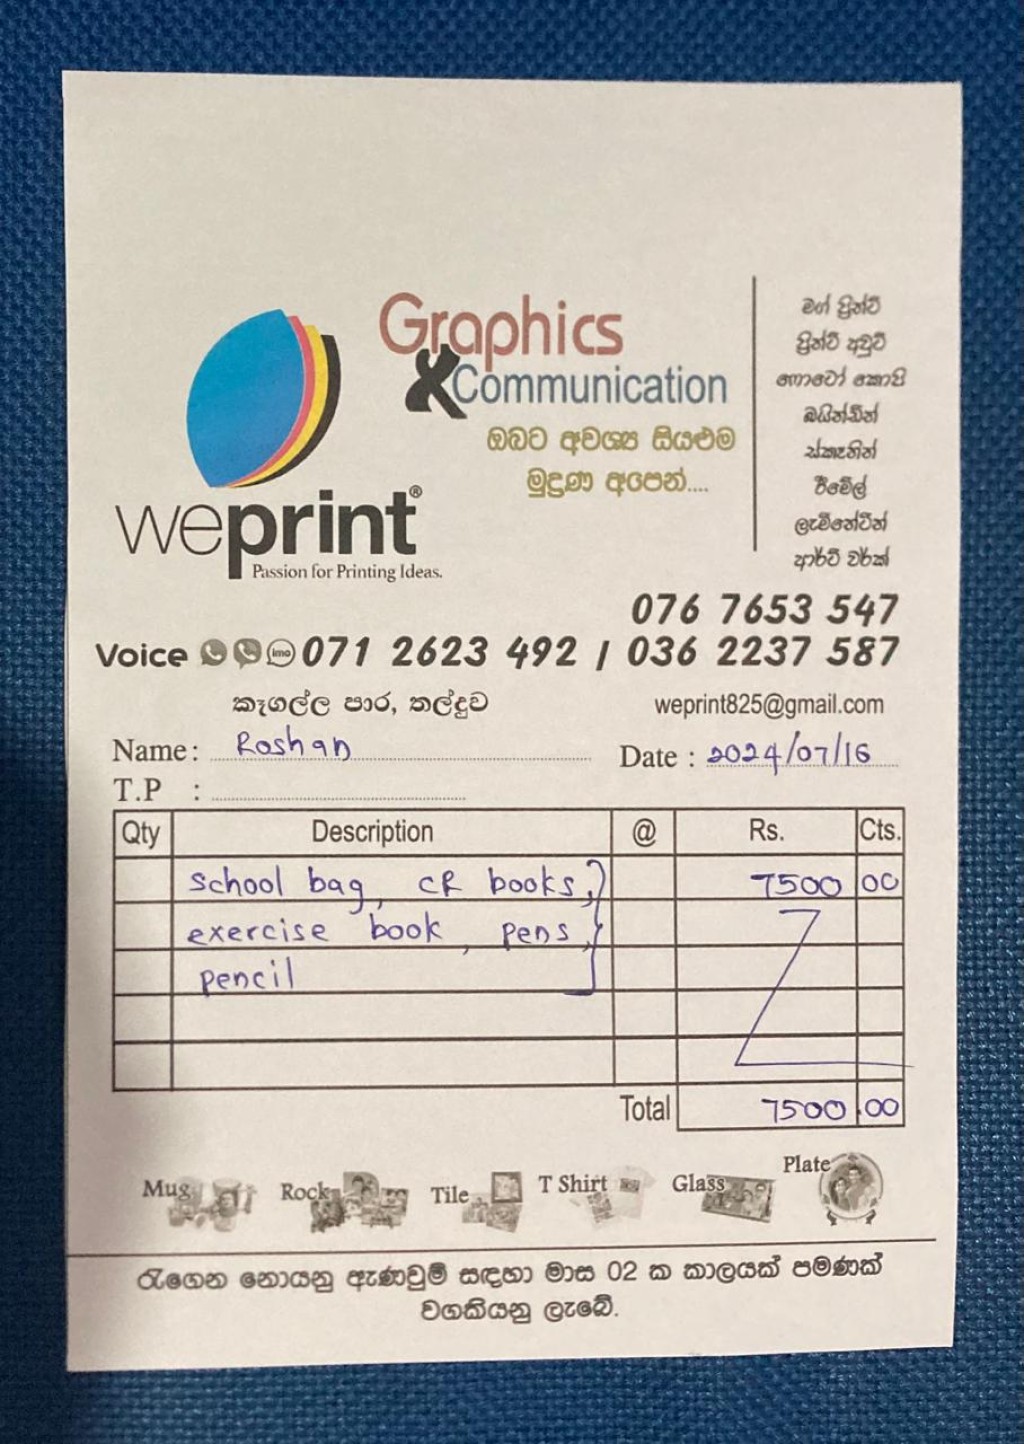 Graphics
& Communication
ඔබට අවශ්‍ය සියළුම
මුද්‍රණ අපෙන්....
weprint®
Passion for Printing Ideas.
මග් ප්‍රින්ට්
ප්‍රින්ට් අවුට්
ෆොටෝ කොපි
බයින්ඩින්
ස්කෑනින්
ඊමේල්
ලැමිනේටින්
ආර්ට් වර්ක්
076 7653 547
Voice imo 071 2623 492 / 036 2237 587
කෑගල්ල පාර, තල්දුව
weprint825@gmail.com
Name : Roshan Date : 2024/07/16
T.P :
Qty Description @ Rs. Cts.
school bag, CR books, 7500 00
exercise book, pens,
pencil
Total 7500.00
Mug Rock Tile T Shirt Glass Plate
රැගෙන නොයනු ඇණවුම් සඳහා මාස 02 ක කාලයක් පමණක්
වගකියනු ලැබේ.